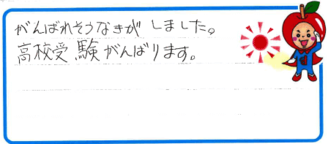 がんばれそうなきが しました。
高校受験がんばります。